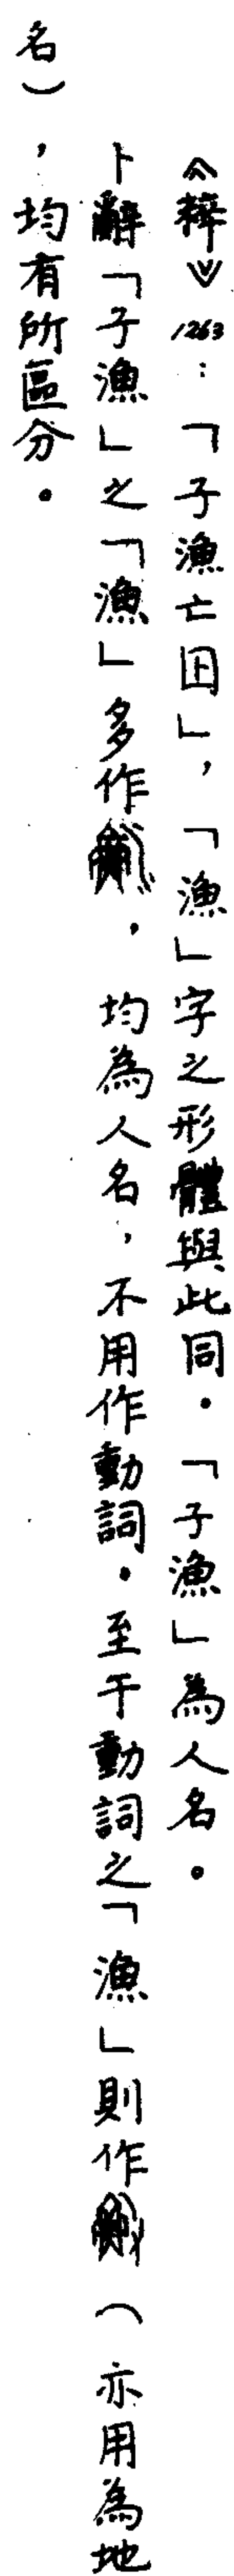 《粹》1263：「子漁亡囚」，「漁」字之形體與此同。「子漁」為人名。
卜辭「子漁」之「漁」多作，均為人名，不用作動詞。至于動詞之「漁」則作（亦用為地
名），均有所區分。